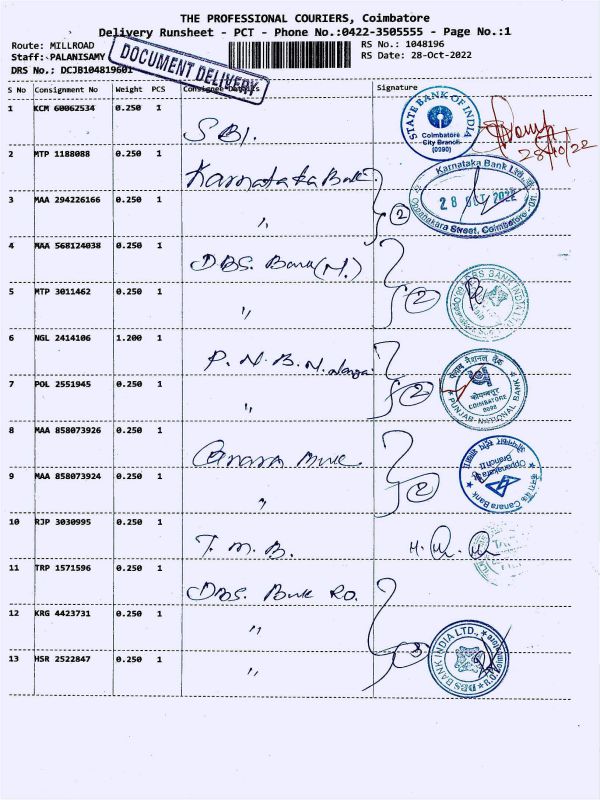 THE PROFESSIONAL COURIERS, Coimbatore
Delivery Runsheet - PCT - Phone No.:0422-3505555 - Page No.:1
Route: MILLROAD
RS No.: 1048196
Staff: PALANISAMY
RS Date: 28-Oct-2022
DRS No.: DCJB104819601
DOCUMENT DELIVERY
S No Consignment No Weight PCS Consignee Details Signature
1 KCM 60062534 0.250 1 SBI.
STATE BANK OF INDIA
Coimbatore
City Branch
(0990)
28/10/22
2 MTP 1188088 0.250 1 Karnataka Bank
Karnataka Bank Ltd.
28 OCT 2022
Oppanakara Street, Coimbatore
3 MAA 294226166 0.250 1 "
2
4 MAA 568124038 0.250 1 DBS. Bank (M.)
5 MTP 3011462 0.250 1 "
2
DBS BANK INDIA LTD
6 NGL 2414106 1.200 1 P.N.B.
7 POL 2551945 0.250 1 "
2
पंजाब नैशनल बैंक
कोयम्बटूर
COIMBATORE
PUNJAB NATIONAL BANK
8 MAA 858073926 0.250 1 Canara Bank
9 MAA 858073924 0.250 1 "
2
Oppanakara St
Branch II
Canara Bank
10 RJP 3030995 0.250 1 T.M.B.
11 TRP 1571596 0.250 1 DBS. Bank RO.
12 KRG 4423731 0.250 1 "
13 HSR 2522847 0.250 1 "
3
DBS BANK INDIA LTD.,